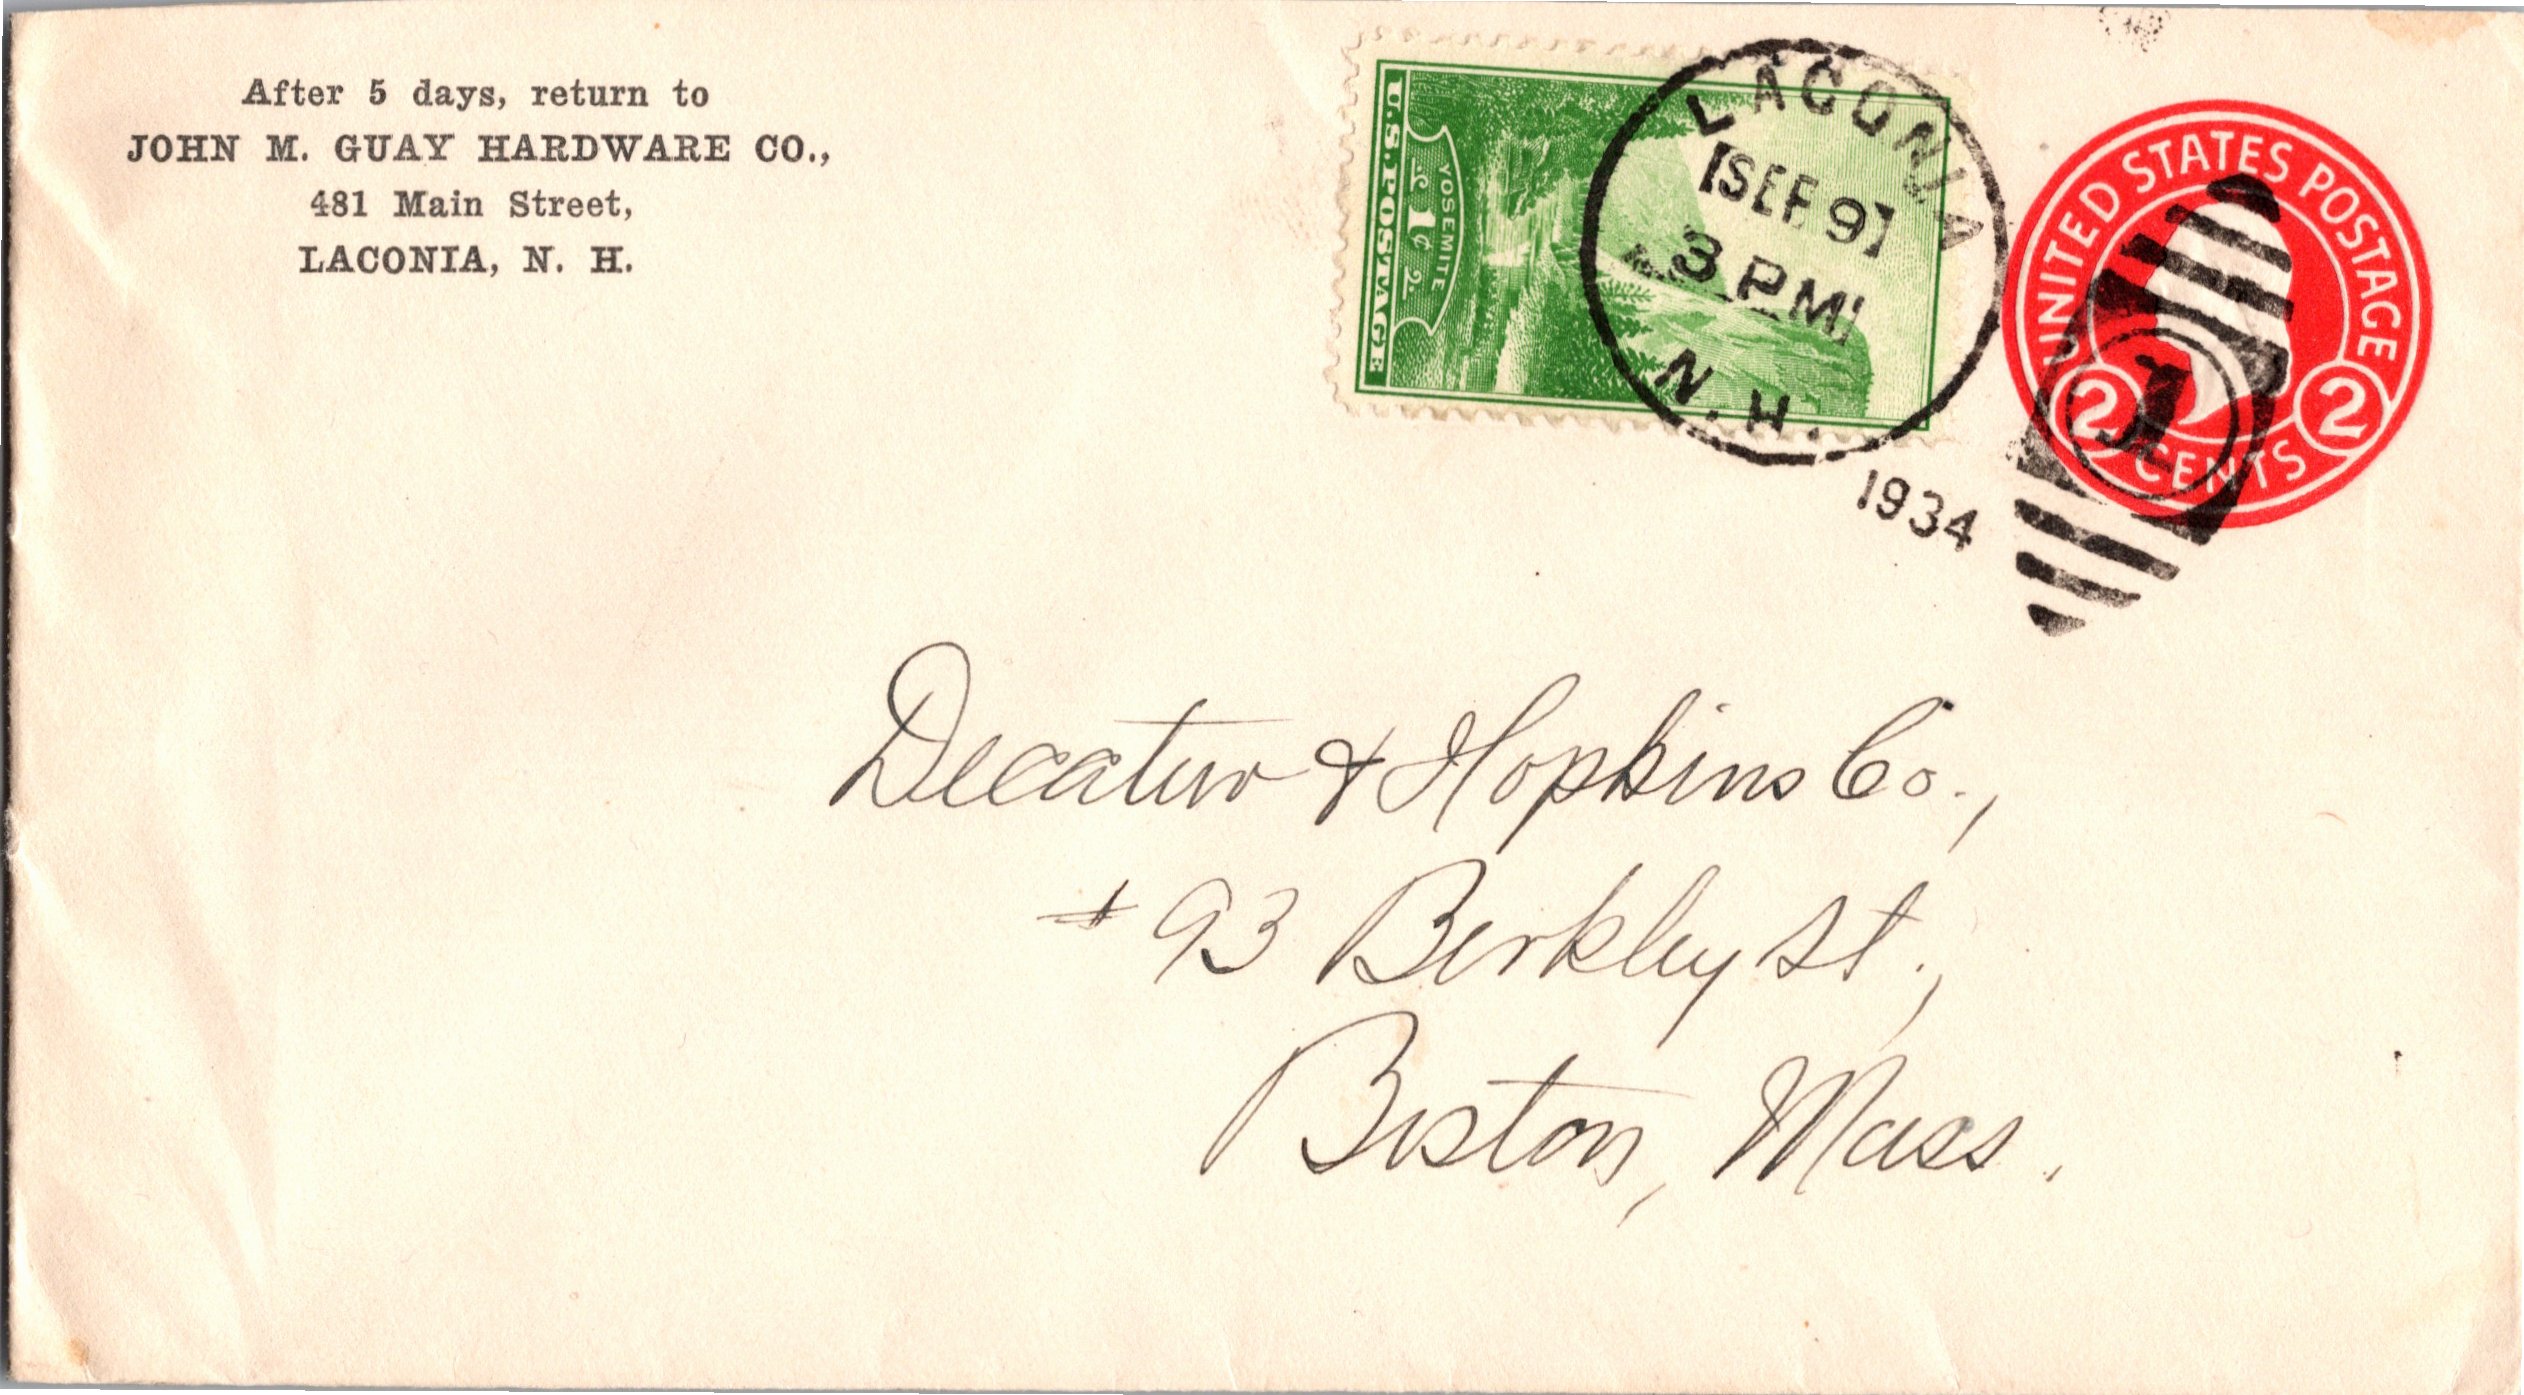 After 5 days, return to
JOHN M. GUAY HARDWARE CO.,
481 Main Street,
LACONIA, N. H.
U.S. POSTAGE
YOSEMITE
1¢
LACONIA
SEP 9
3 PM
N.H.
1934
UNITED STATES POSTAGE
2 CENTS 2
1
Decatur & Hopkins Co.,
# 93 Berkley St.,
Boston, Mass.